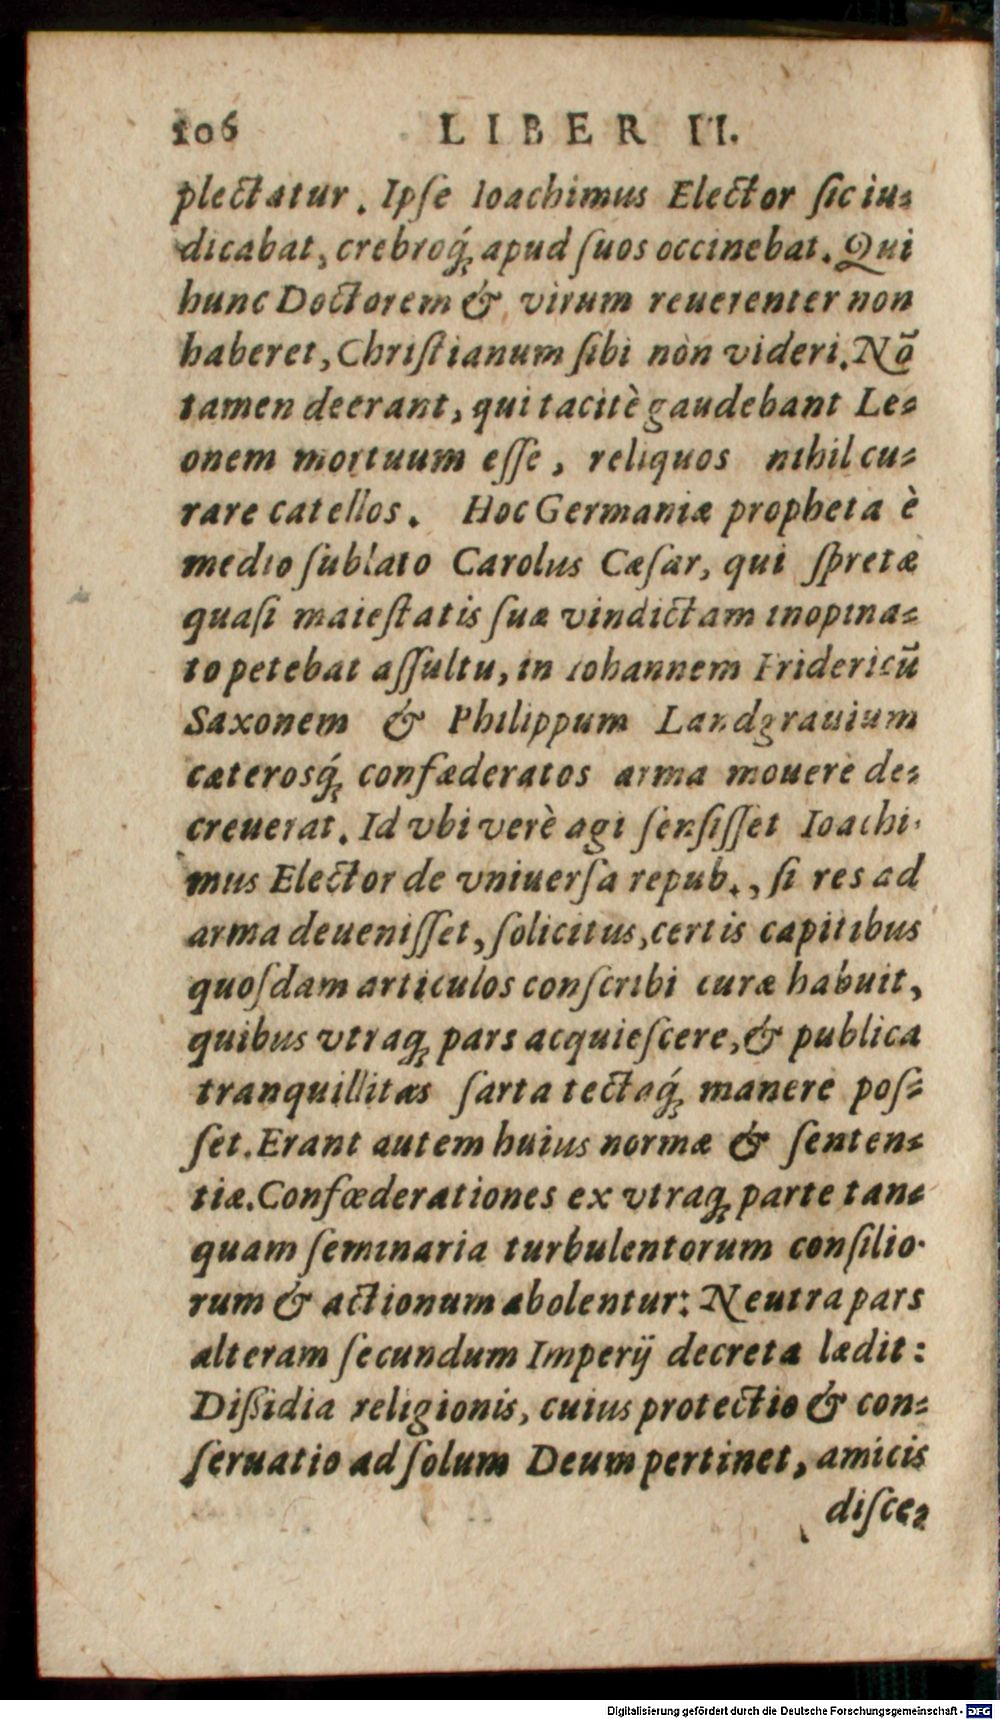 106 LIBER II.
plectatur. Ipſe Ioachimus Elector ſic iu-
dicabat, crebroq́; apud ſuos occinebat. Qui
hunc Doctorem & virum reuerenter non
haberet, Chriſtianum ſibi non videri. Nõ
tamen deerant, qui tacitè gaudebant Le-
onem mortuum eſſe, reliquos nihil cu-
rare catellos. Hoc Germaniæ propheta è
medio ſublato Carolus Cæſar, qui ſpretæ
quaſi maieſtatis ſuæ vindictam inopina-
to petebat aſſultu, in Iohannem Fridericũ
Saxonem & Philippum Landgrauium
cæterosq́; confæderatos arma mouere de-
creuerat. Id vbi verè agi ſenſiſſet Ioachi-
mus Elector de vniuerſa repub., ſi res ad
arma deueniſſet, ſolicitus, certis capitibus
quoſdam articulos conſcribi curæ habuit,
quibus vtraq; pars acquieſcere, & publica
tranquillitas ſarta tectaq́; manere poſ-
ſet. Erant autem huius normæ & ſenten-
tiæ. Confœderationes ex vtraq; parte tan-
quam ſeminaria turbulentorum conſilio-
rum & actionum abolentur: Neutra pars
alteram ſecundum Imperij decreta lædit:
Dißidia religionis, cuius protectio & con-
ſeruatio ad ſolum Deum pertinet, amicis
diſce-
Digitalisierung gefördert durch die Deutsche Forschungsgemeinschaft - DFG